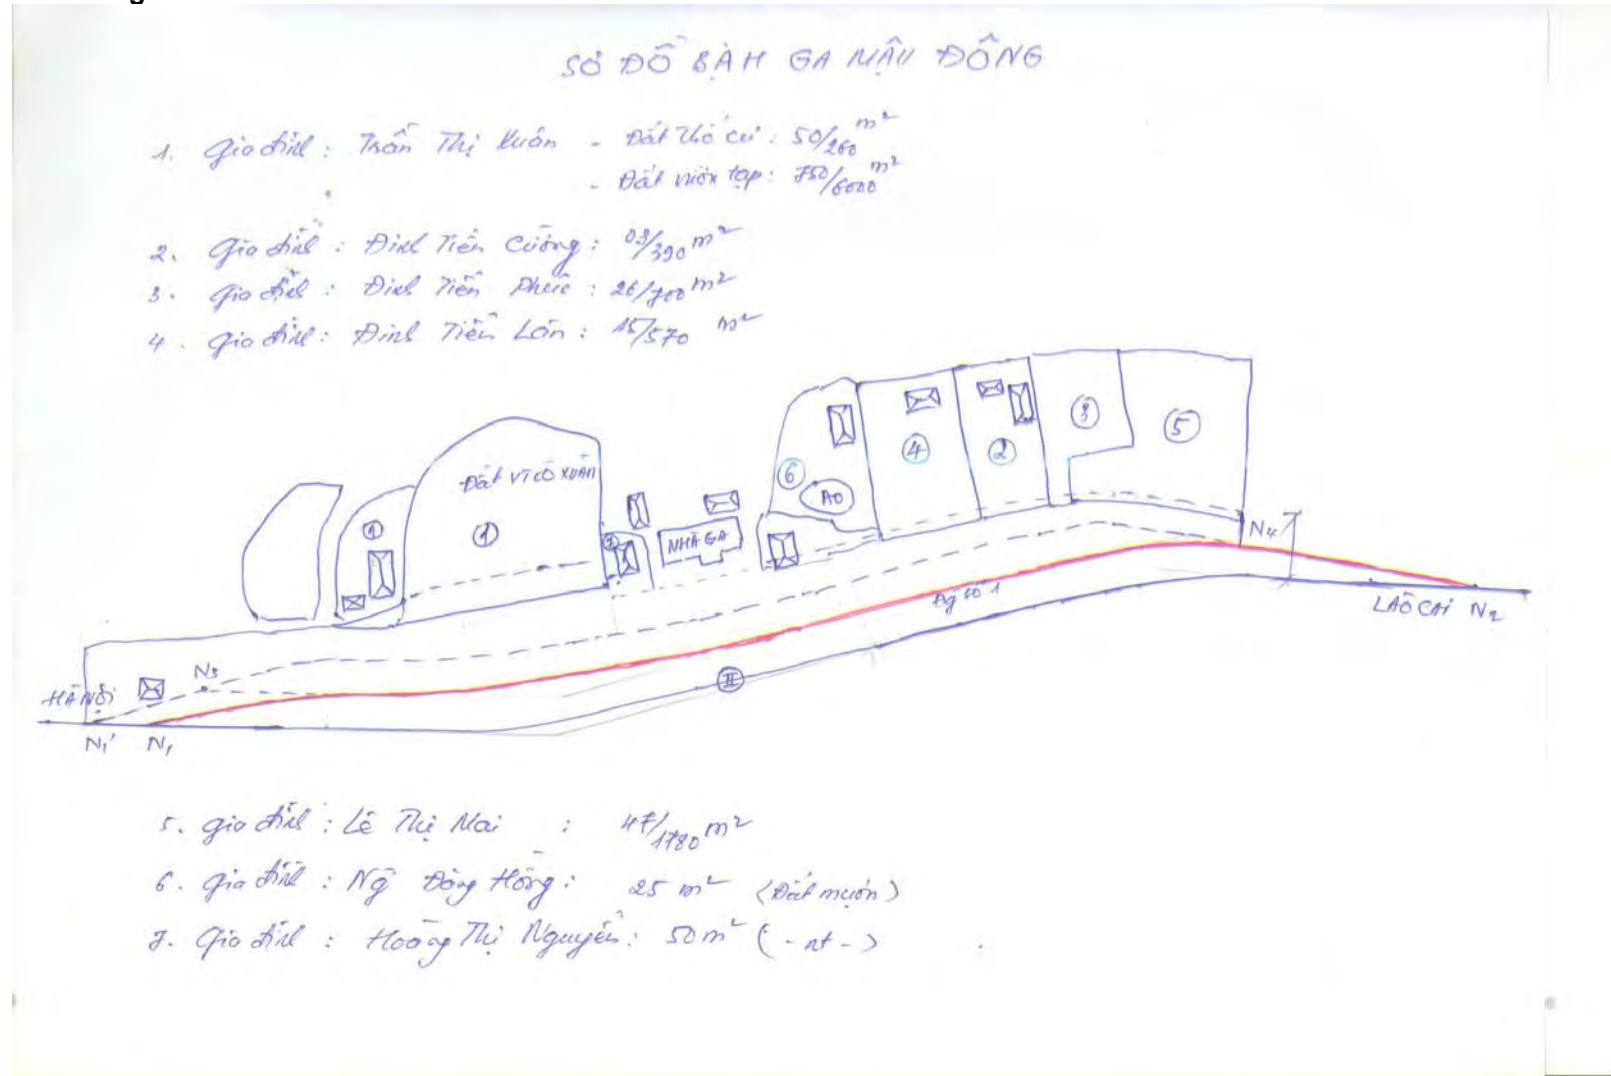 SƠ ĐỒ BÀH GA MẬU ĐÔNG
1. Gia đình : Trần Thị Xuân - Đất thổ cư : 50/260 m²
- Đất vườn tạp : 750/6000 m²
2. Gia đình : Đinh Tiến Cường : 03/390 m²
3. Gia đình : Đinh Tiến Phúc : 26/700 m²
4. Gia đình : Đinh Tiến Lân : 15/570 m²
1
Đất VTCÔ XUÂN
1
7
NHÀ GA
6
AO
4
2
3
5
N4
Đg số 1
LÀO CAI N2
II
N3
HÀ NỘI
N1' N1
5. gia đình : Lê Thị Mai : 47/1780 m²
6. gia đình : Ng Đông Hồng : 25 m² (Đất mượn)
7. Gia đình : Hoàng Thị Nguyên : 50 m² (- nt -)